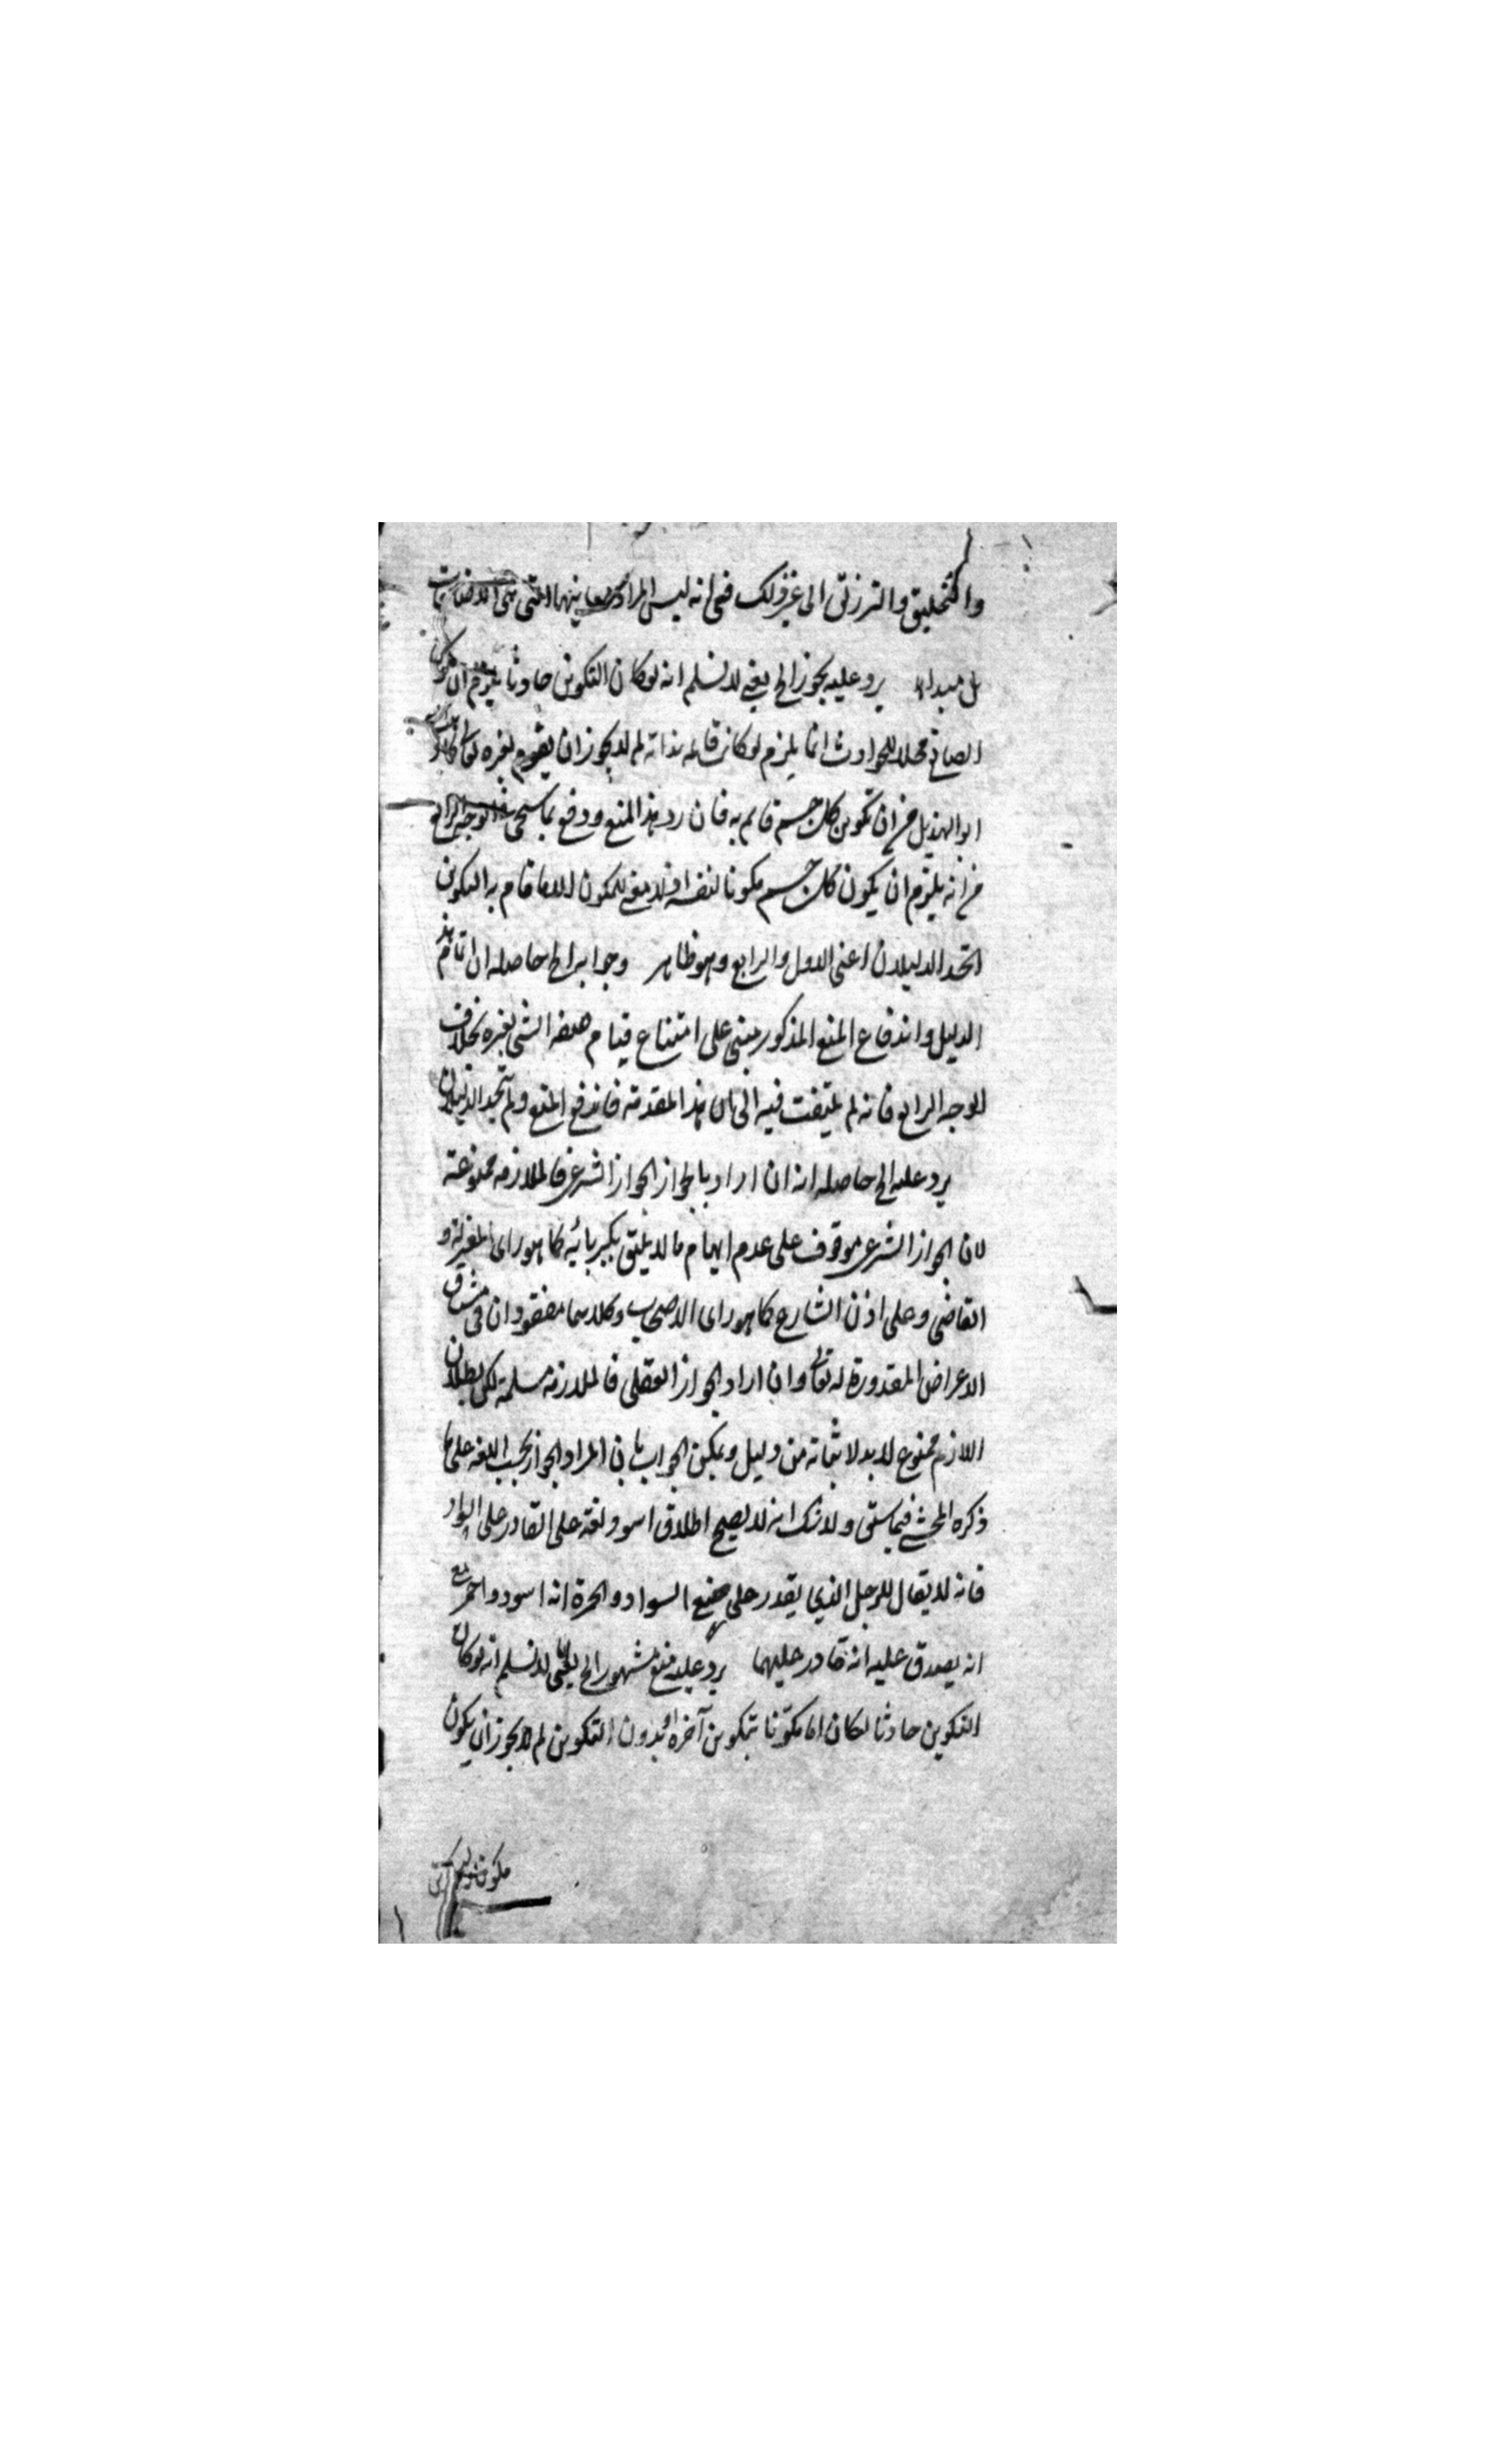 والتخليق والترزيق الى غير ذلك فى انه ليس المراد معانيها التى هى الاضافات
بل مبداء يرد عليه يجوز الخ يعنى لا نسلم انه لو كان التكوين حادثا يلزم ان يكون
الصانع محلا للحوادث انما يلزم لو كان قائما بذاته لم لا يجوز ان يقوم بغيره كما قال
ابو الهذيل من ان تكوين كل جسم قائم به فان رد هذا المنع ودفع بما سيجئ فى الوجه الرابع
من انه يلزم ان يكون كل جسم مكونا لنفسه اذ لا معنى للمكون الا ما قام به التكوين
اتحد الدليلان اعنى الاول والرابع وهو ظاهر وجوابه الخ حاصله ان اتمام هذا
الدليل واندفاع المنع المذكور مبنى على امتناع قيام صفة الشئ بغيره بخلاف
الوجه الرابع فانه لم يلتفت فيه الى هذا المقدمة فاندفع المنع ولم يتحد الدليلان
يرد عليه الخ حاصله انه ان اراد بالجواز الجواز الشرعى فالملازمة ممنوعة
لان الجواز الشرعى موقوف على عدم ايهام ما لا يليق بكبريائه كما هو راى المعتزلة و
القاضى وعلى اذن الشارع كما هو راى الاصحاب وكلاهما مفقودان فى مشتاق
الاعراض المقدورة له تعالى وان اراد الجواز العقلى فالملازمة مسلمة لكن بطلان
اللازم ممنوع لا بد لاثباته من دليل ويمكن الجواب بان المراد الجواز بحسب اللغة على ما
ذكره المحشى فيما سبق ولا شك انه لا يصح اطلاق اسود لغة على القادر على السواد
فانه لا يقال للرجل الذى يقدر على صنع السواد والحمرة انه اسود واحمر مع
انه يصدق عليه انه قادر عليهما يرد عليه منع مشهور الخ يعنى لا نسلم انه لو كان
التكوين حادثا لكان اما مكونا بتكوين آخر او بدون التكوين لم لا يجوز ان يكون